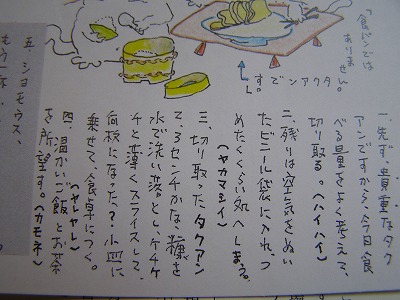 「食パンでは
ありません。
タクアンです。
一、先ず、貴重なタク
アンですから、今日食
べる量をよく考えて、
切り取る。（ハイハイ）
二、残りは空気をぬい
たビニール袋に入れ、つ
めたくくらい処へしまう。
（ヤカマシイ）
三、切り取ったタクアン
て、3センチかな、糠を
水で洗い落とし、ケチケ
チと薄くスライスして、
何枚になった？小皿に
乗せて、食卓につく。
（ヤレヤレ）
四、温かいご飯とお茶
を所望す。（カモネ）
五、ショモウス、